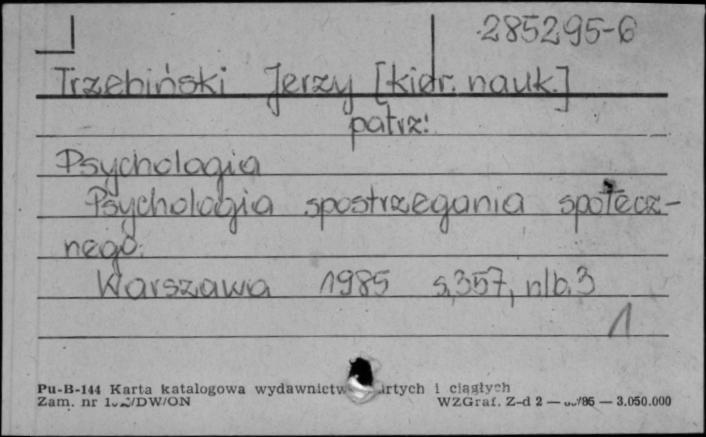 285295-6
Trzebiński Jerzy [kier. nauk.]
patrz:
Psychologia
Psychologia spostrzegania społecz-
nego.
Warszawa 1985 s. 357, nlb. 3
1
Pu-B-144 Karta katalogowa wydawnictw i ciągłych
Zam. nr WZGraf. Z-d 2 — — 3.050.000